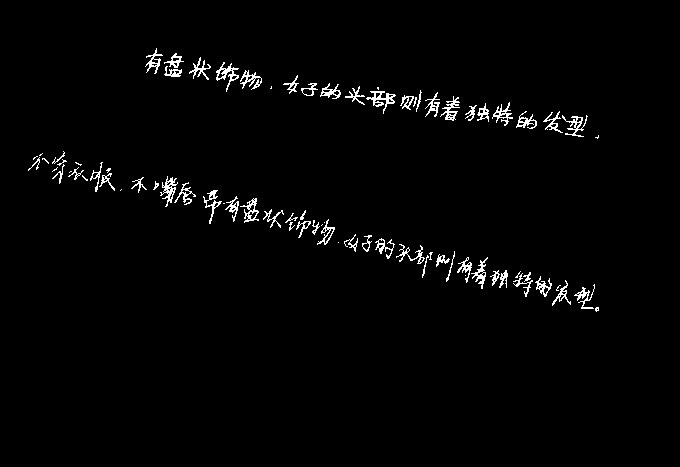 有盘状饰物，女子的头部则有着独特的发型，
不穿衣服，不嘴唇带有盘状饰物，女子的头部则有着独特的发型。